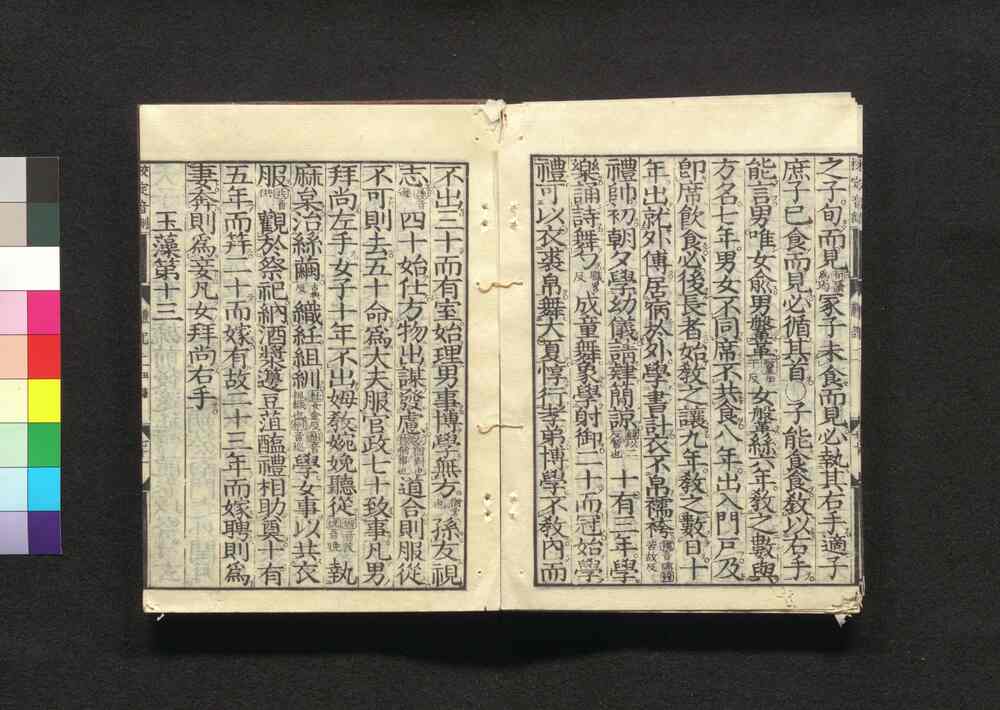 之子旬而見冢子未食而見必執其右手適子
庶子已食而見必循其首○子能食食敎以右手
能言男唯女兪男鞶革女鞶絲六年敎之數與
方名七年男女不同席不共食八年出入門戶及
即席飮食必後長者始敎之讓九年敎之數日十
年出就外傅居宿於外學書計衣不帛襦袴
禮帥初朝夕學幼儀請肄簡諒十有三年學
樂誦詩舞勺成童舞象學射御二十而冠始學
禮可以衣裘帛舞大夏惇行孝弟博學不敎內而
不出三十而有室始理男事博學無方孫友視
志四十始仕方物出謀發慮道合則服從
不可則去五十命爲大夫服官政七十致事凡男
拜尚左手女子十年不出姆敎婉娩聽從執
麻枲治絲繭織紝組紃學女事以共衣
服觀於祭祀納酒漿籩豆菹醢禮相助奠十有
五年而笄二十而嫁有故二十三年而嫁聘則爲
妻奔則爲妾凡女拜尚右手
玉藻第十三